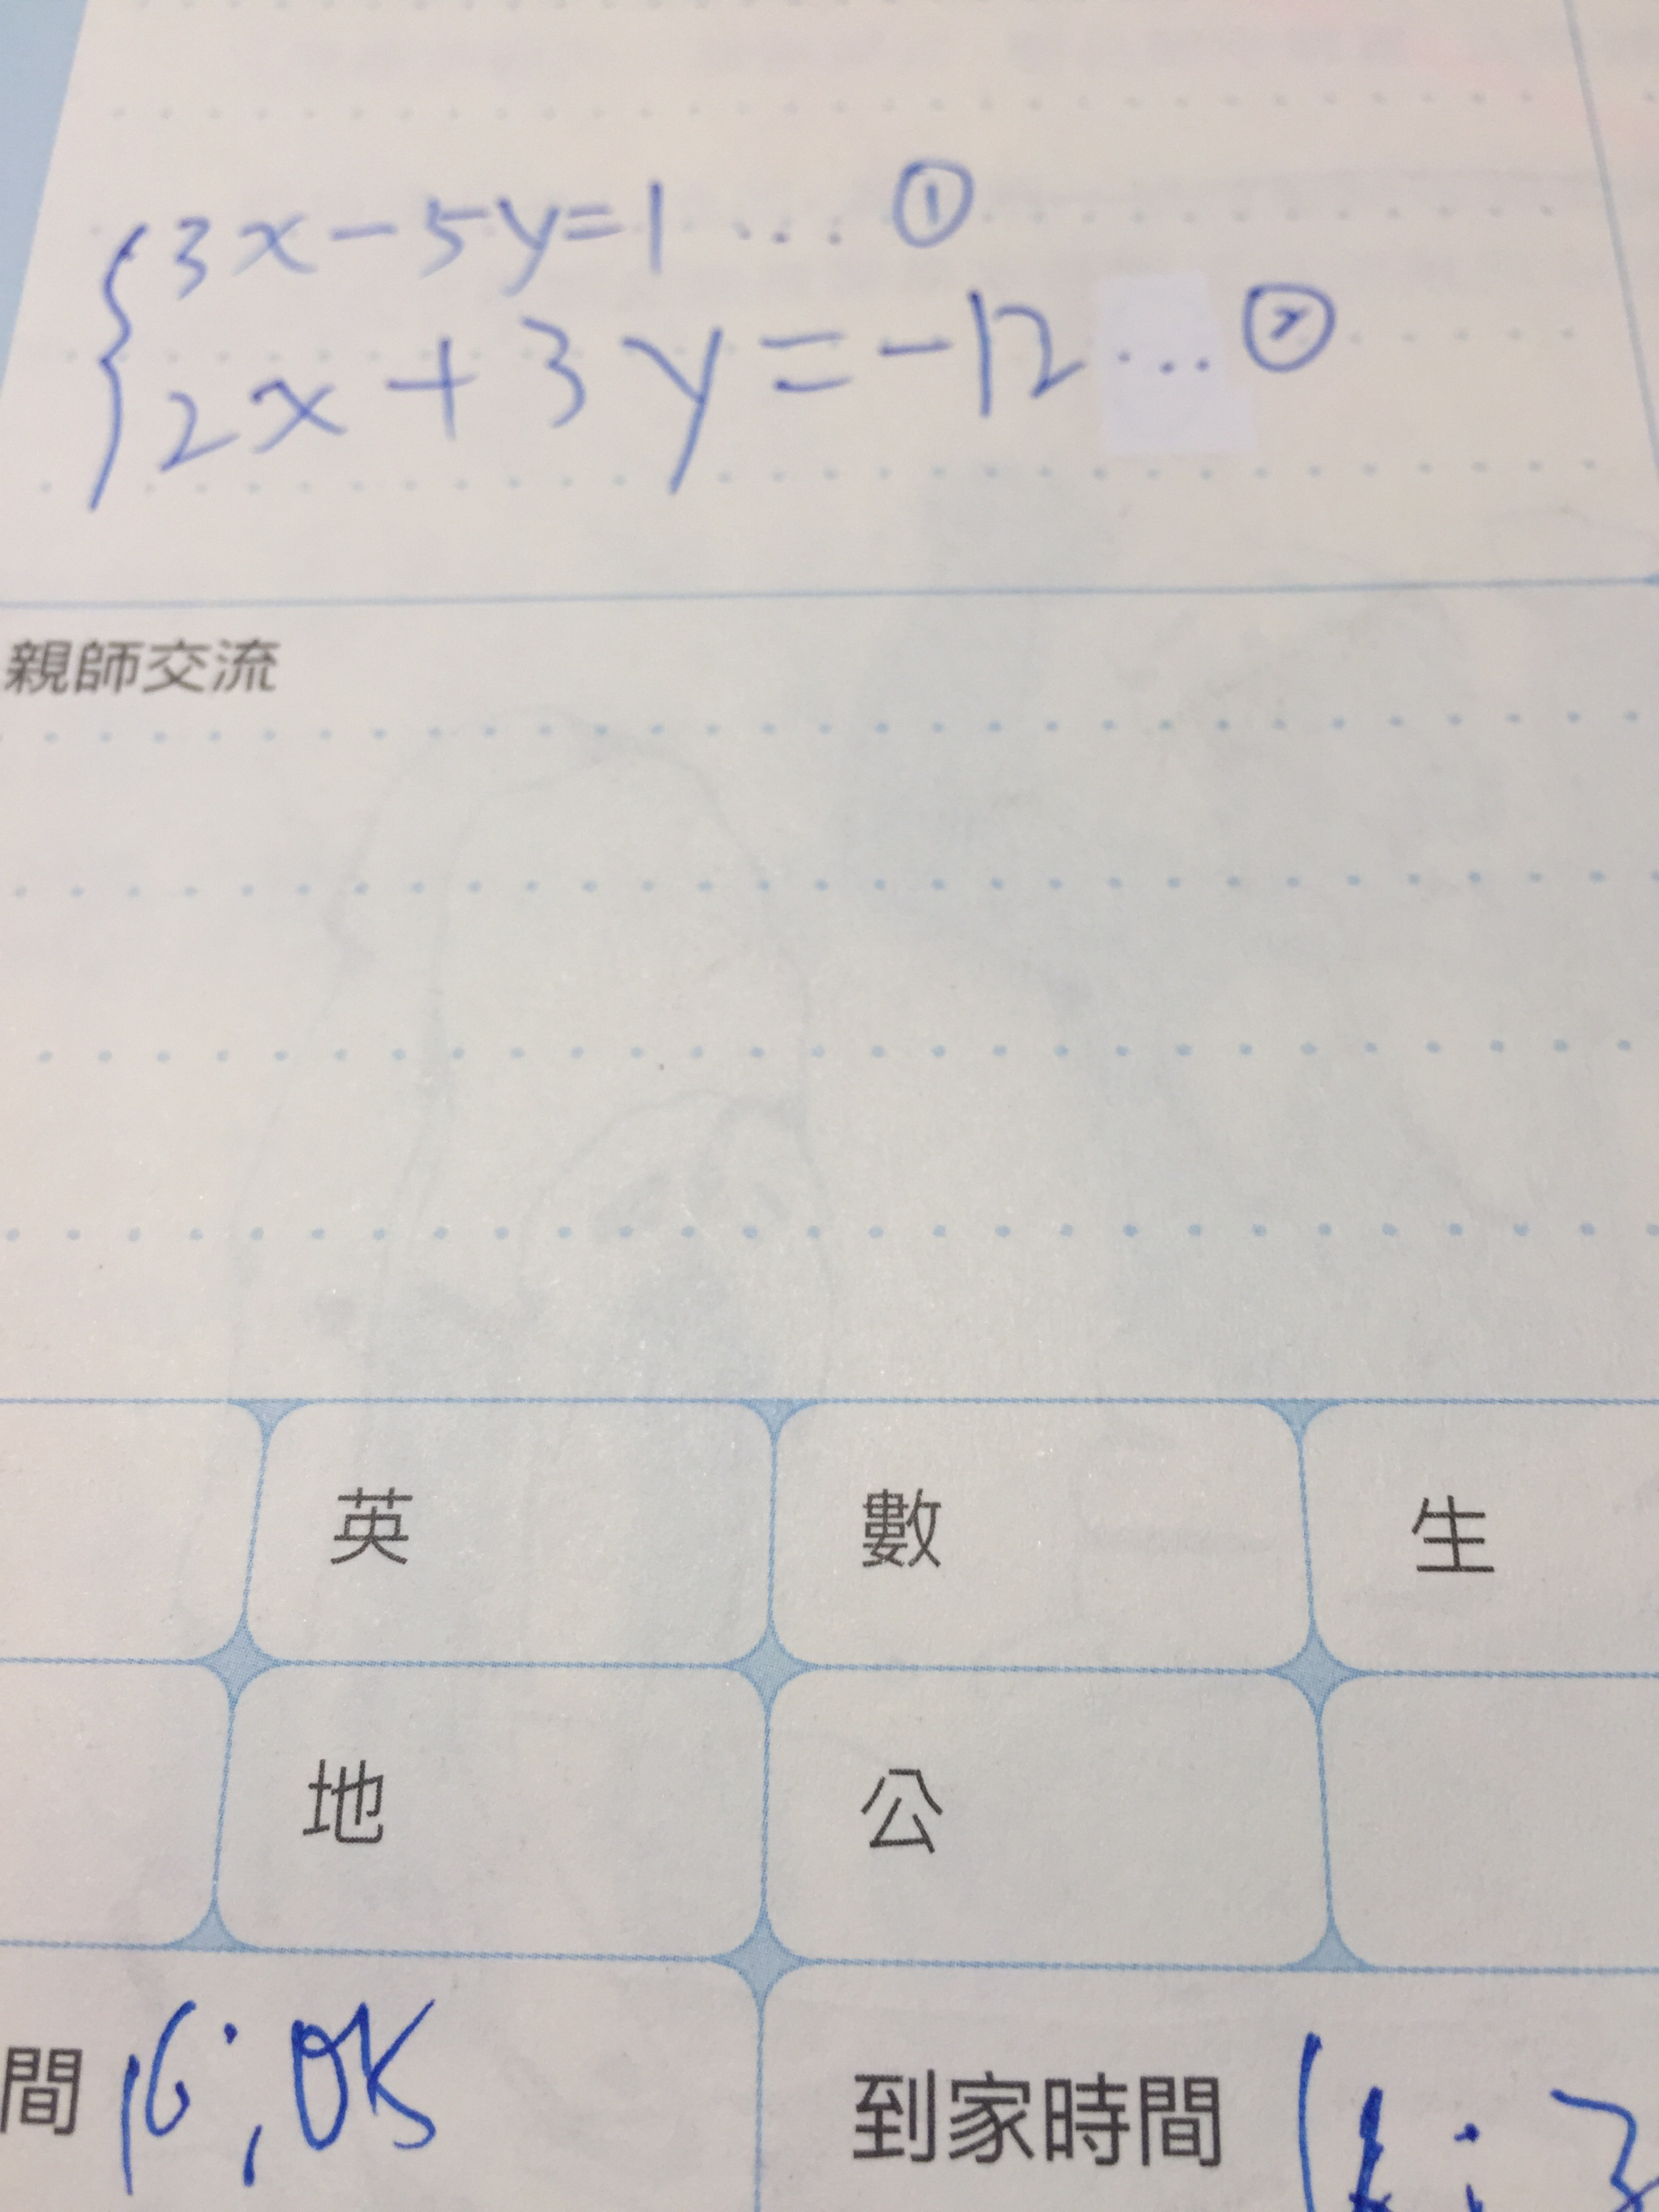 3x-5y=1 ... ①
2x+3y=-12 ... ②
親師交流
英 數 生
地 公
間 16:
到家時間